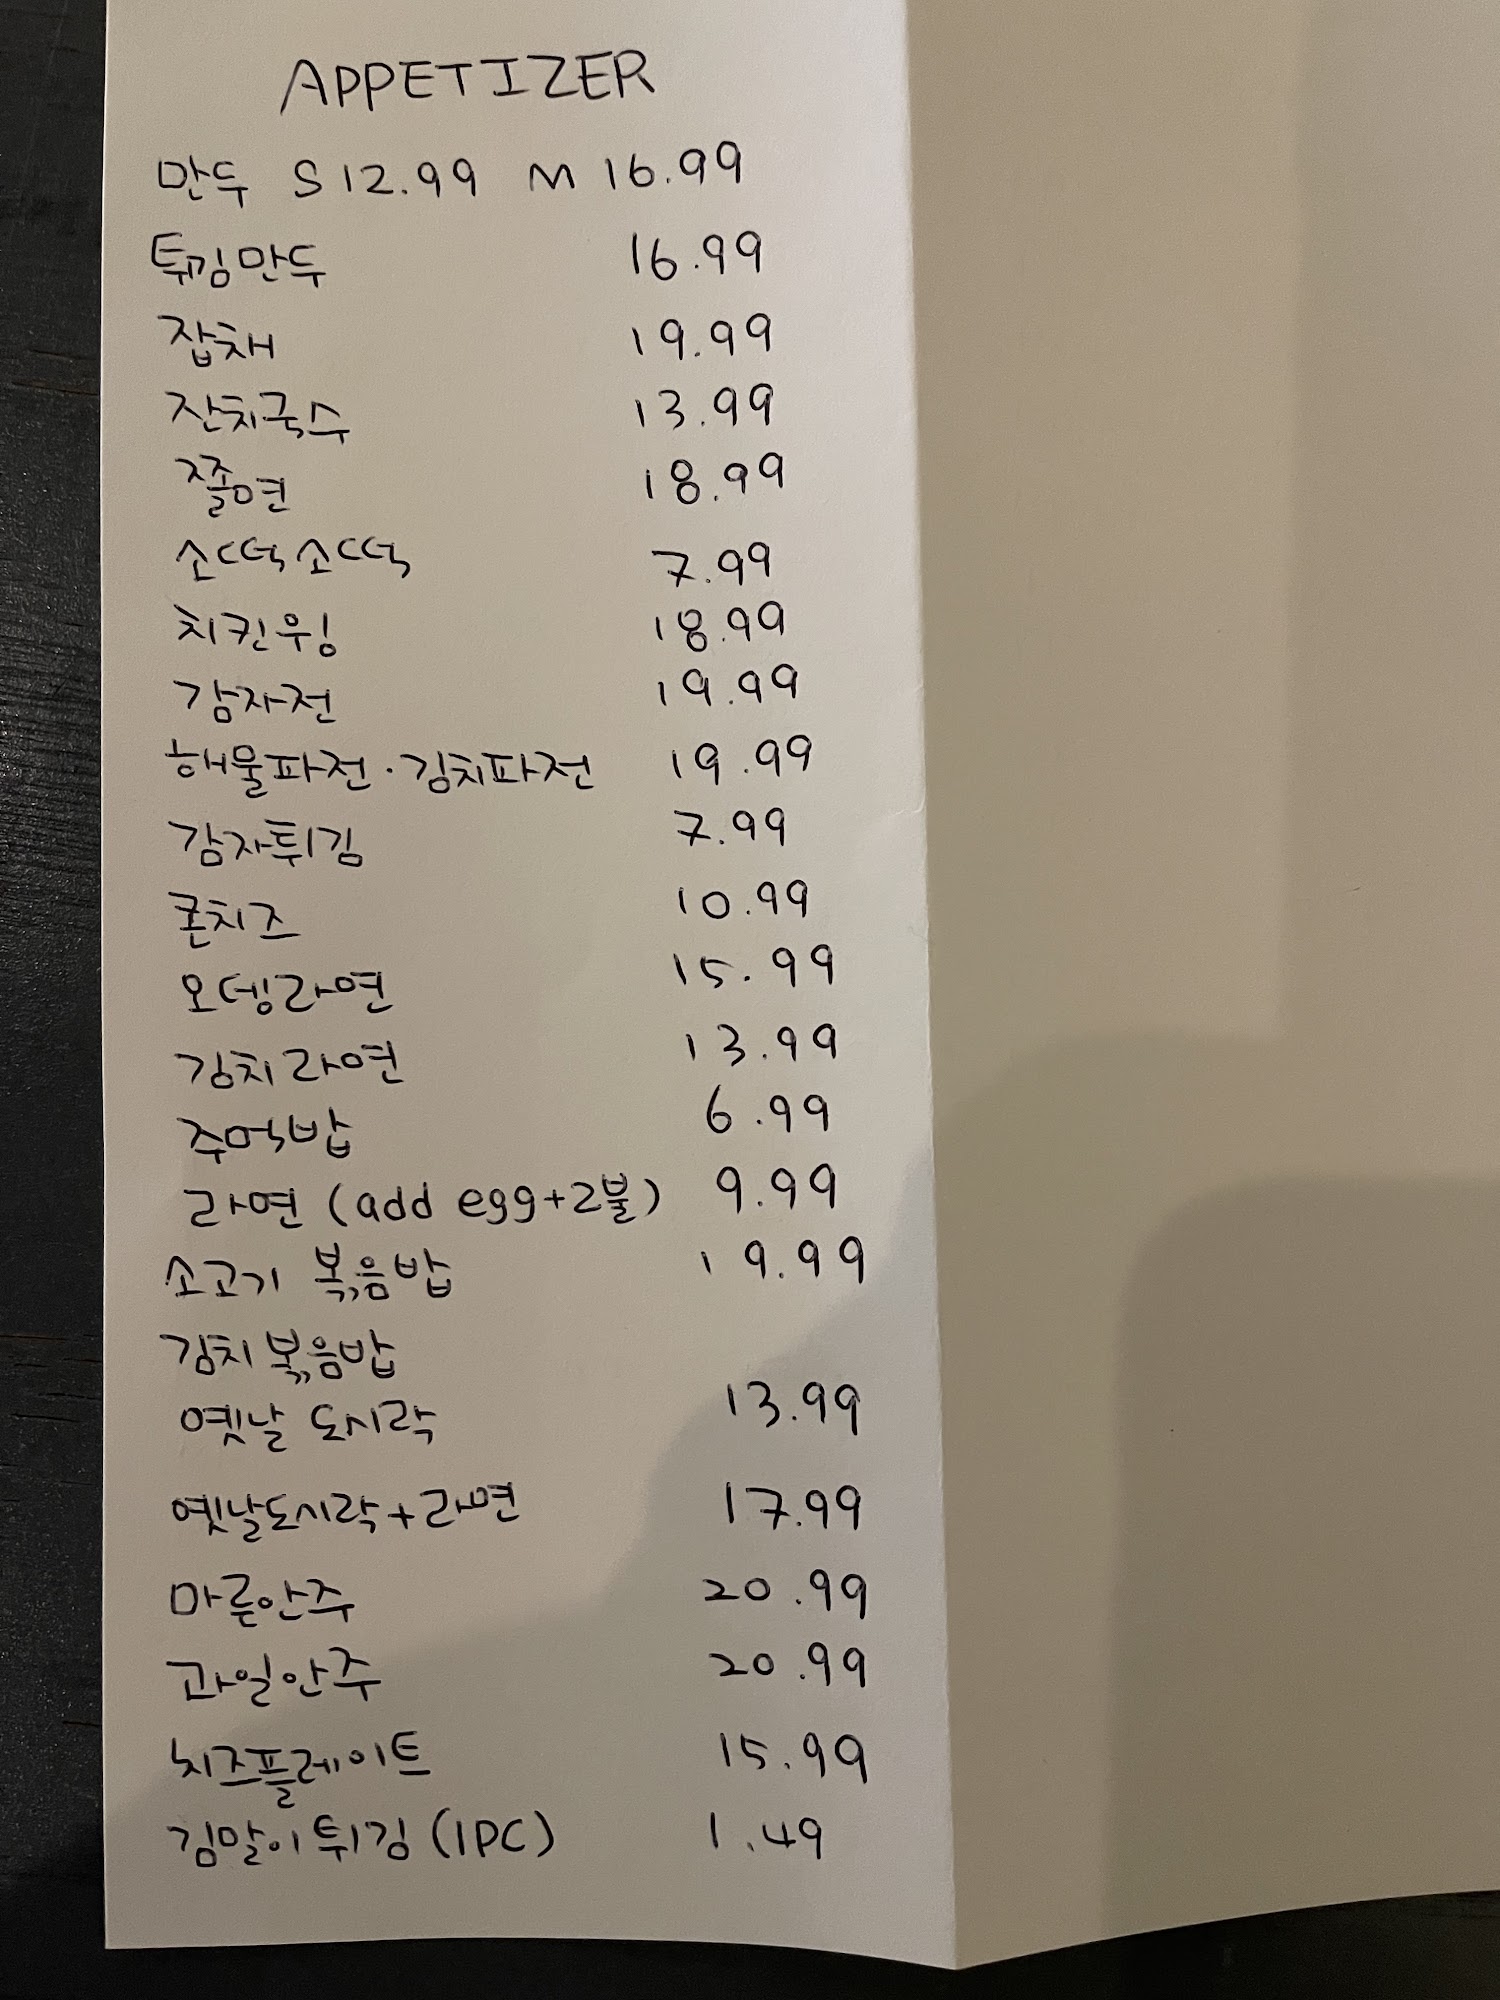 APPETIZER
만두 S 12.99 M 16.99
튀김만두 16.99
잡채 19.99
잔치국수 13.99
쫄면 18.99
소떡소떡 7.99
치킨윙 18.99
감자전 19.99
해물파전·김치파전 19.99
감자튀김 7.99
콘치즈 10.99
오뎅라면 15.99
김치라면 13.99
주먹밥 6.99
라면 (add egg+2불) 9.99
소고기 볶음밥 19.99
김치볶음밥
옛날 도시락 13.99
옛날도시락+라면 17.99
마른안주 20.99
과일안주 20.99
치즈플레이트 15.99
김말이튀김 (1PC) 1.49